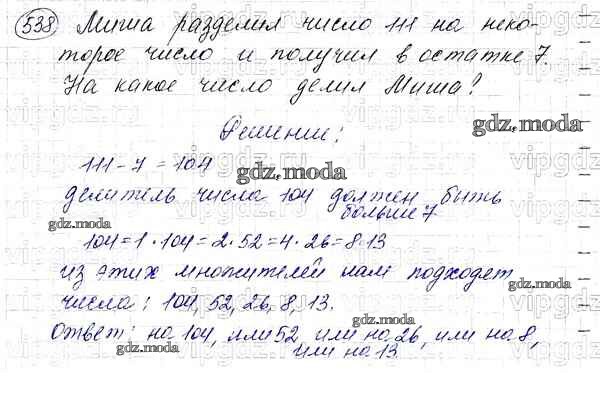 538 Миша разделил число 111 на неко-
торое число и получил в остатке 7.
На какое число делил Миша?
gdz.moda
Решение:
111-7=104
gdz.moda
делитель числа 104 должен быть
больше 7
gdz.moda
104=1·104=2·52=4·26=8·13
gdz.moda
из этих множителей нам подходят
gdz.moda
числа: 104, 52, 26, 8, 13.
gdz.moda
Ответ: на 104, или 52, или на 26, или на 8,
или на 13
gdz.moda